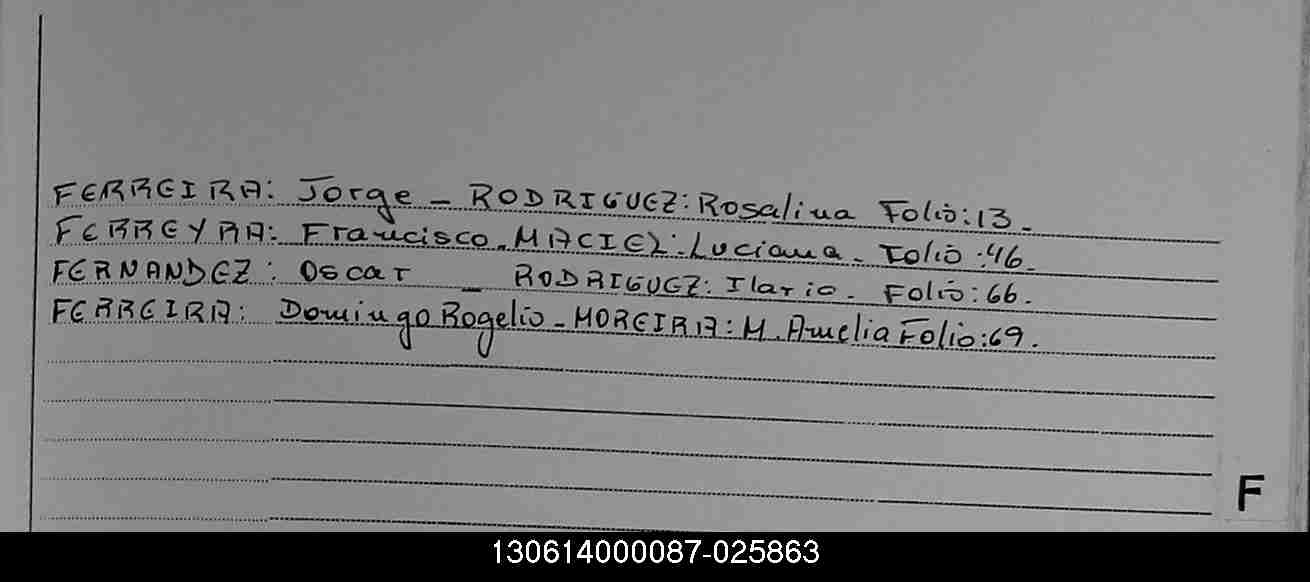 FERREIRA: Jorge - RODRIGUEZ: Rosalina Folio: 13.
FERREYRA: Francisco. MACIEL: Luciana. Folio: 46.
FERNANDEZ: Oscar - RODRIGUEZ: Ilario. Folio: 66.
FERREIRA: Domingo Rogelio - MOREIRA: M. Amelia Folio: 69.
F
130614000087-025863